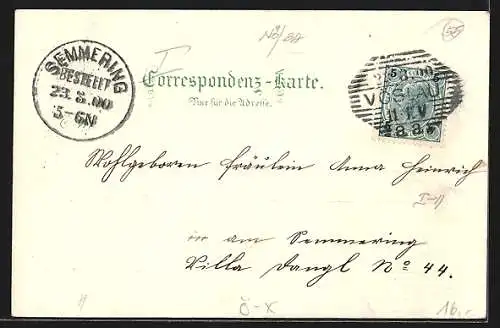 No/88
55
SEMMERING
BESTELLT
23.8.00
5-6N
I
Correspondenz-Karte.
Nur für die Adresse.
5 5
23.8.00
VÖSLAU
Wohlgeboren Fräulein Anna Heinrich
in am Semmering
Villa Dangl No 44.
Ö-X
16.-